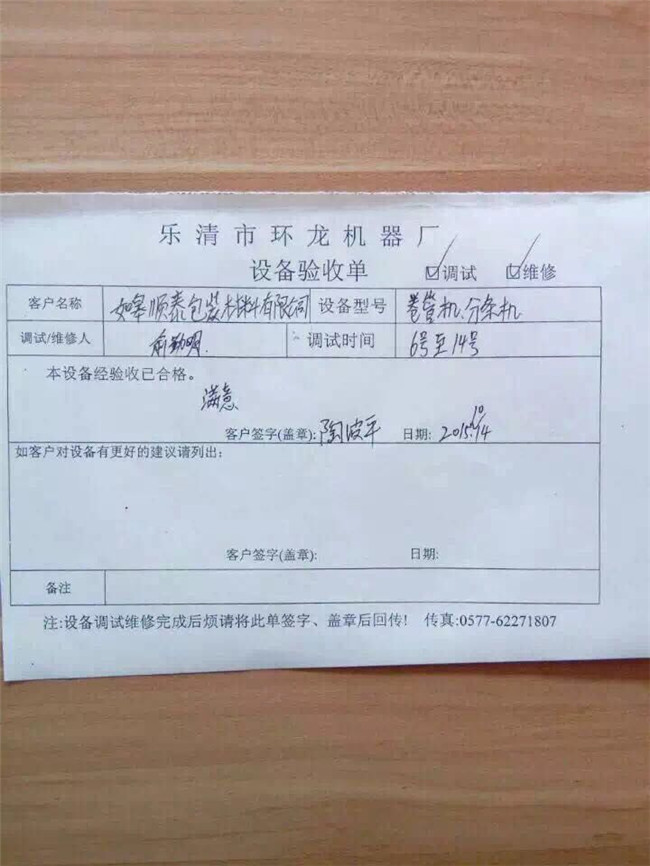 乐清市环龙机器厂
设备验收单 ☑调试 ☑维修
客户名称 如皋顺泰包装材料有限公司 设备型号 卷管机、分条机
调试/维修人 俞勤明 调试时间 6号至14号
本设备经验收已合格。
满意
客户签字(盖章): 陶波平 日期: 2015.10.14
如客户对设备有更好的建议请列出:
客户签字(盖章): 日期:
备注
注:设备调试维修完成后烦请将此单签字、盖章后回传! 传真:0577-62271807